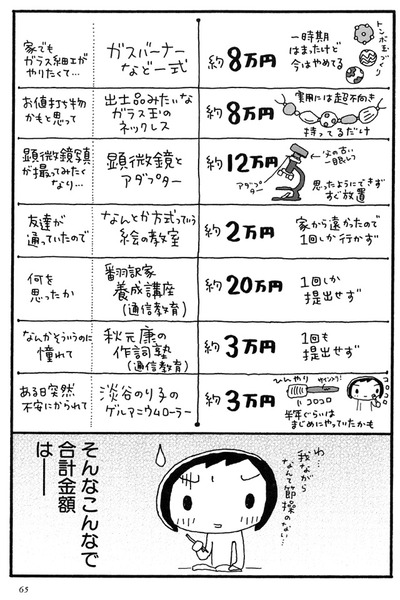 家でも
ガラス細工が
やりたくて…
ガスバーナー
など一式
約8万円
一時期
はまったけど
今はやめてる
トンボ玉づくり
お値打ち物
かもと思って
出土品みたいな
ガラス玉の
ネックレス
約8万円
実用には超不向き
持ってるだけ
顕微鏡写真
が撮ってみたく
なり…
顕微鏡と
アダプター
約12万円
←父の古い
一眼レフ
アダプター
思ったようにできず
すぐ放置
友達が
通っていたので
なんとか方式っていう
絵の教室
約2万円
家から遠かったので
1回しか行かず
何を
思ったか
翻訳家
養成講座
(通信教育)
約20万円
1回しか
提出せず
なんかそういうのに
憧れて
秋元康の
作詞塾
(通信教育)
約3万円
1回も
提出せず
ある日突然
不安にかられて
淡谷のり子の
ゲルマニウムローラー
約3万円
ひんやり
コロコロ
コロコロ
半年ぐらいは
まじめにやっていたかも
そんなこんなで
合計金額
は——
わ…
我ながら
なんて節操のない…
65